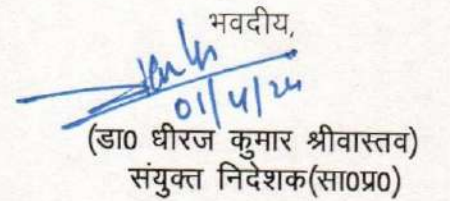 भवदीय,
01/4/24
(डा0 धीरज कुमार श्रीवास्तव)
संयुक्त निदेशक(सा0प्र0)